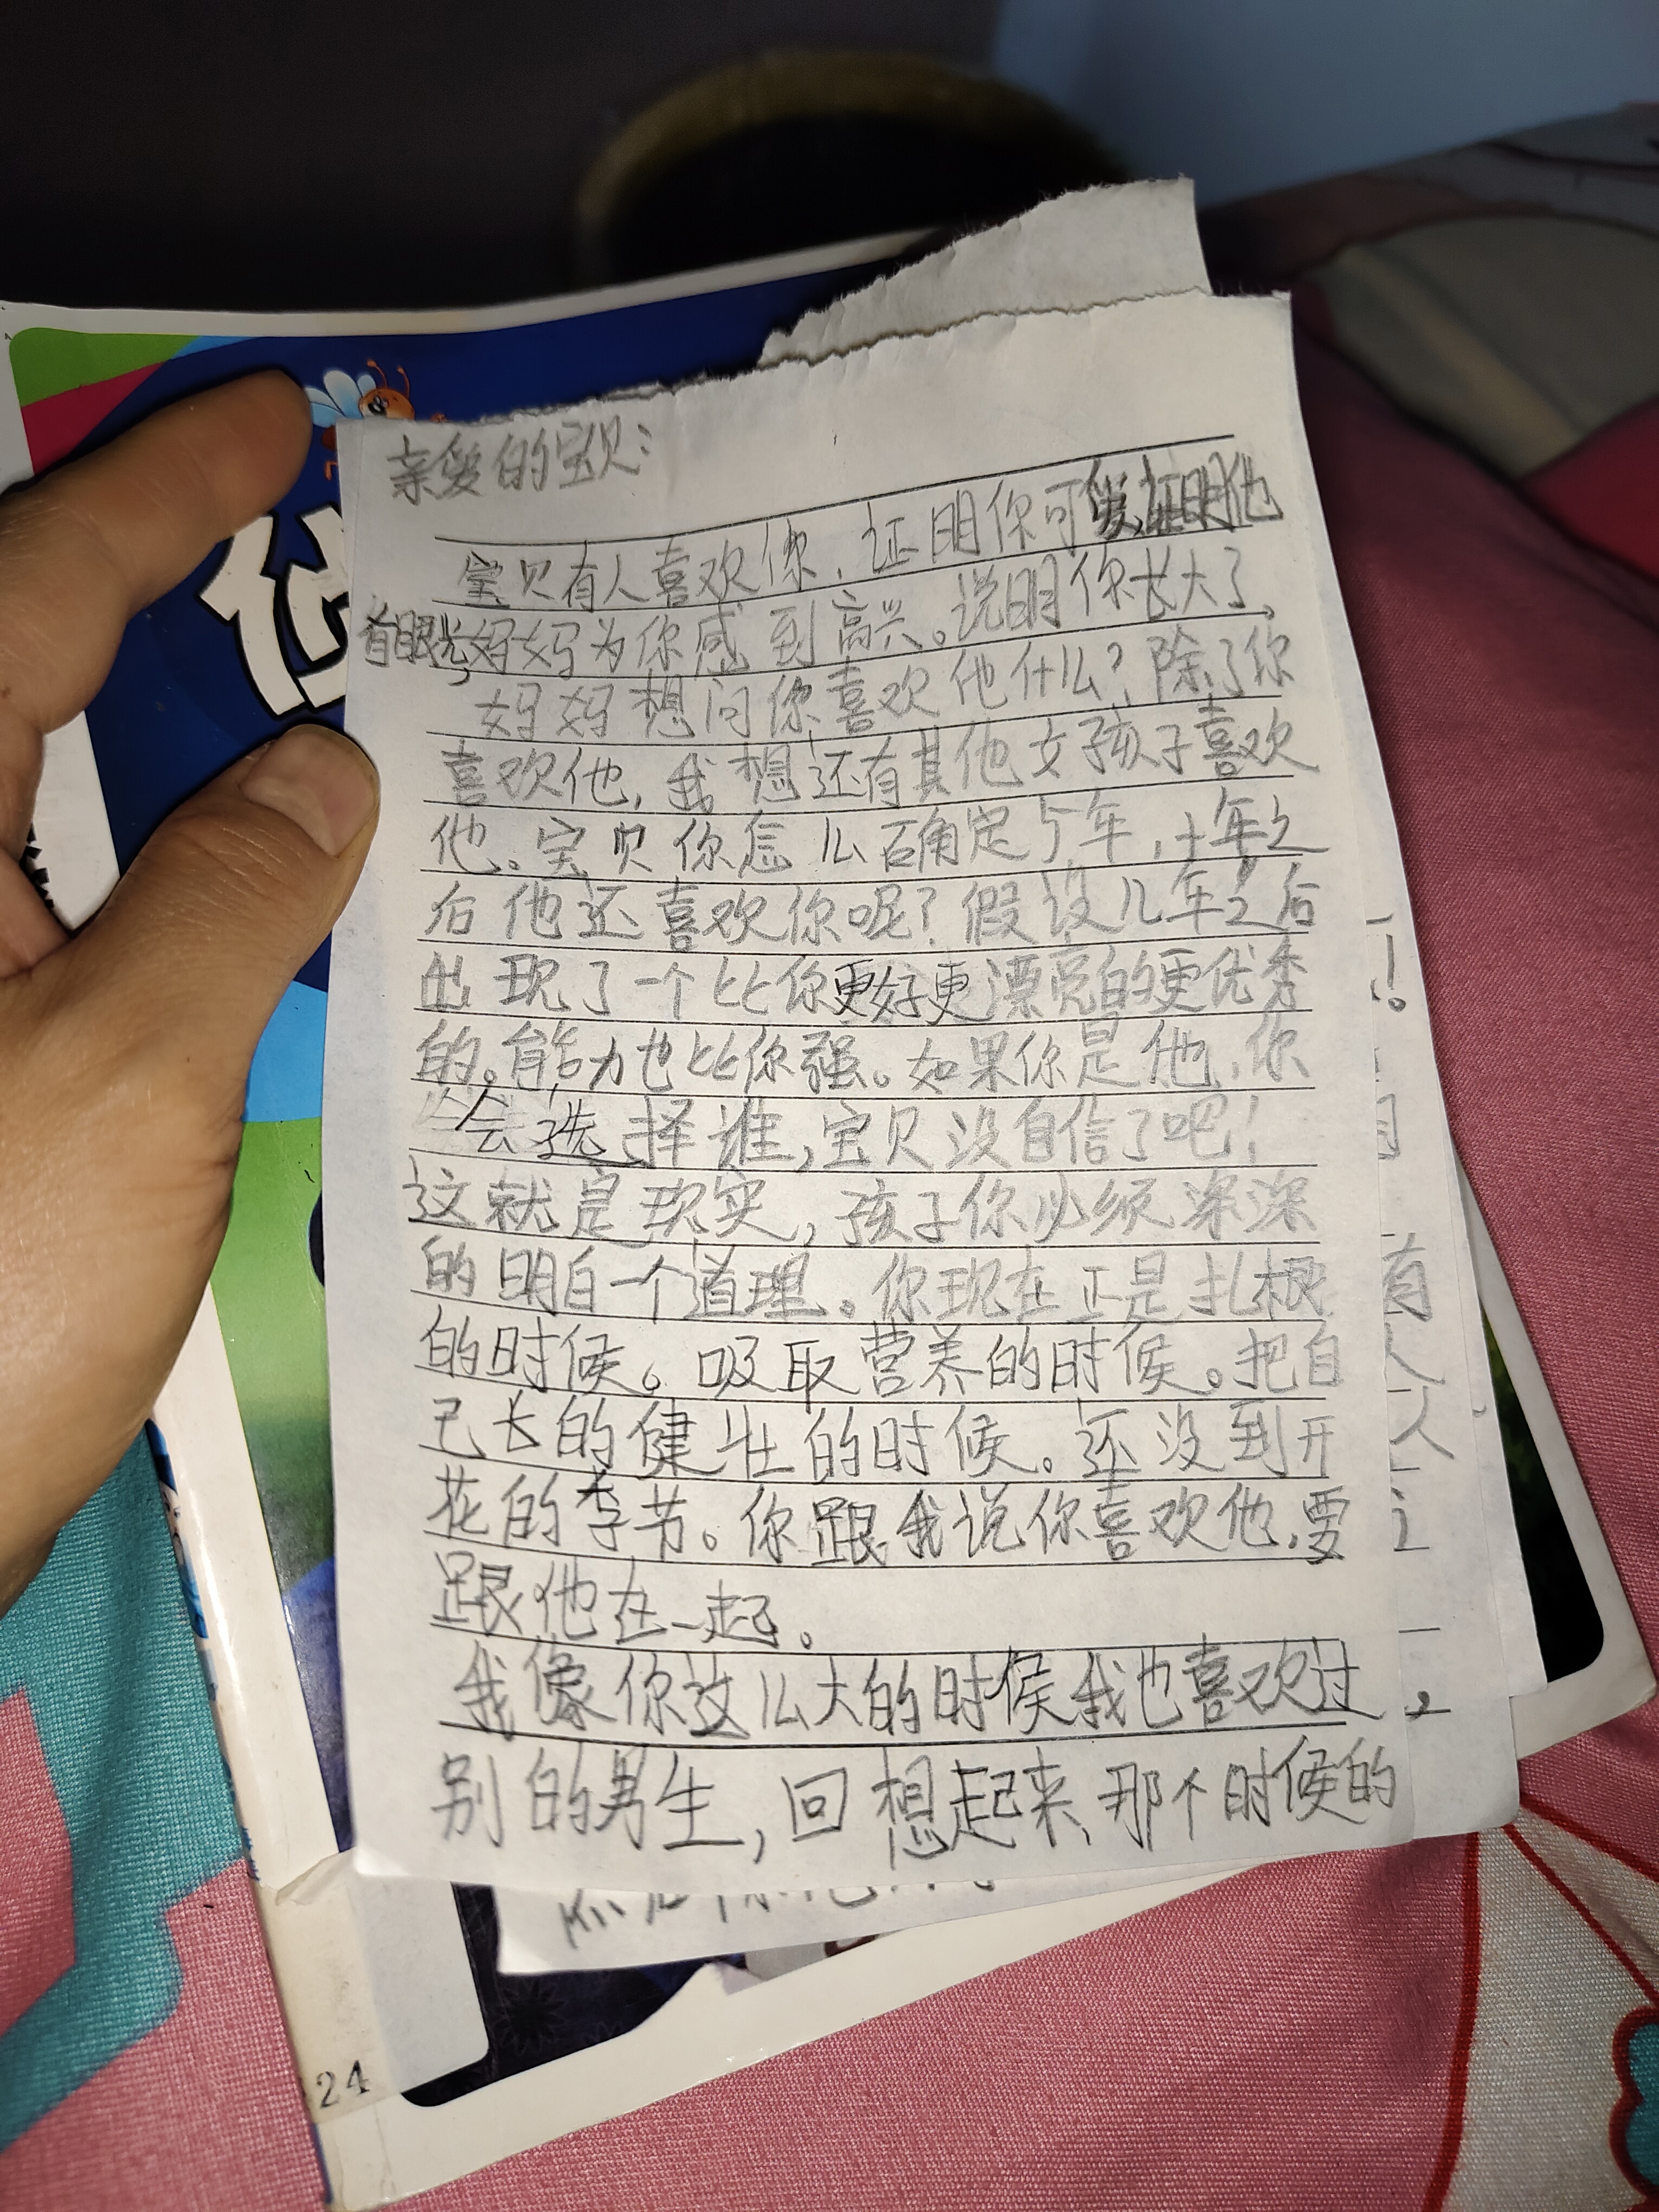 亲爱的宝贝:
宝贝有人喜欢你,证明你可爱,证明他
有眼光,妈妈为你感到高兴。说明你长大了,
妈妈想问你喜欢他什么?除了你
喜欢他,我想还有其他女孩子喜欢
他。宝贝你怎么确定5年,十年之
后他还喜欢你呢?假设几年之后
出现了一个比你更好更漂亮的更优秀
的。能力也比你强。如果你是他,你
会选择谁,宝贝没自信了吧!
这就是现实,孩子你必须深深
的明白一个道理。你现在正是扎根
的时候。吸取营养的时候。把自
己长的健壮的时候。还没到开
花的季节。你跟我说你喜欢他,要
跟他在一起。
我像你这么大的时候我也喜欢过
别的男生,回想起来,那个时候的
有
人
24